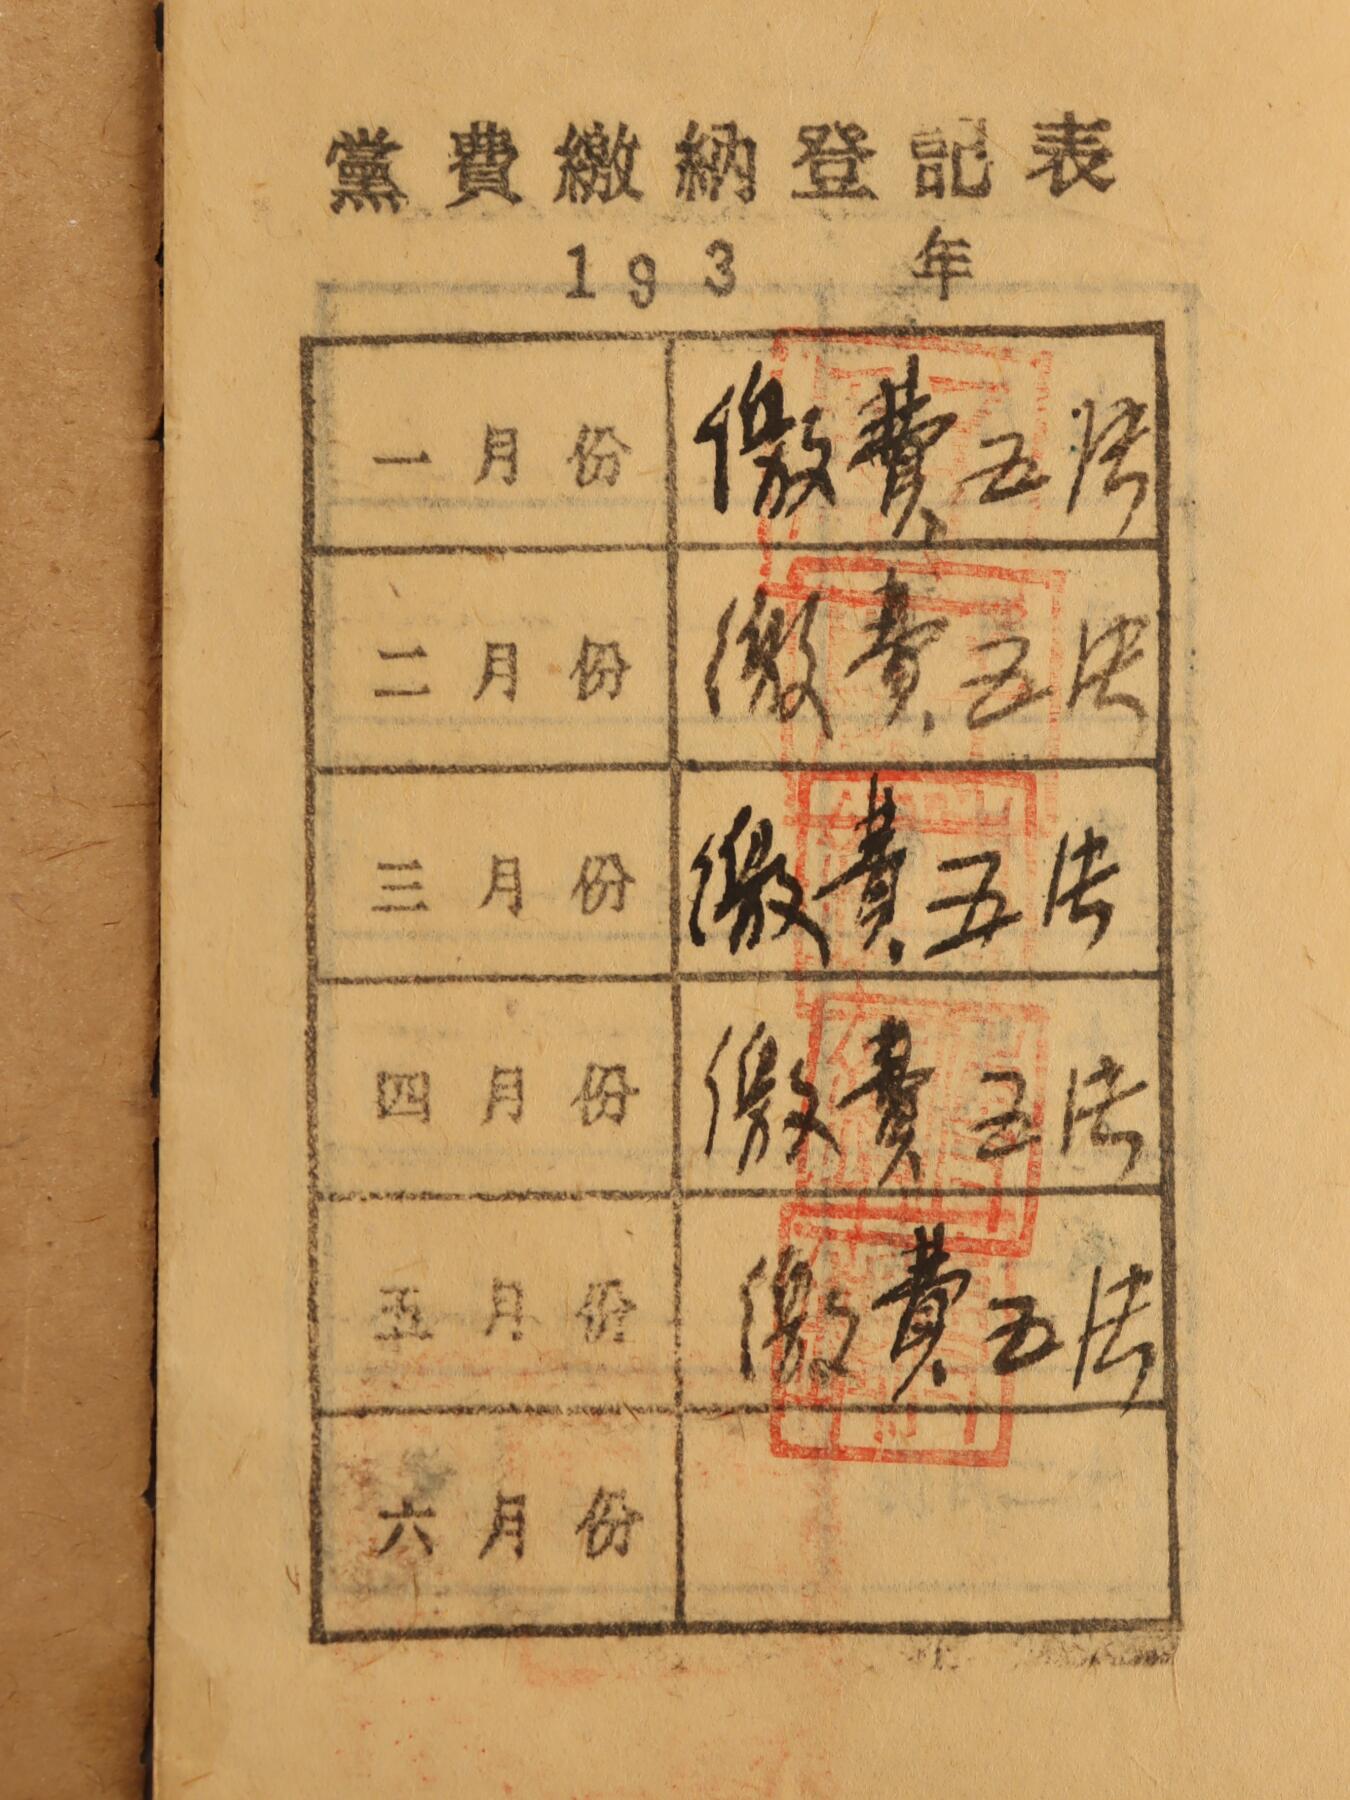 黨費繳納登記表
193 年
一月份 繳費五
二月份 繳費五
三月份 繳費五
四月份 繳費五
五月份 繳費五
六月份